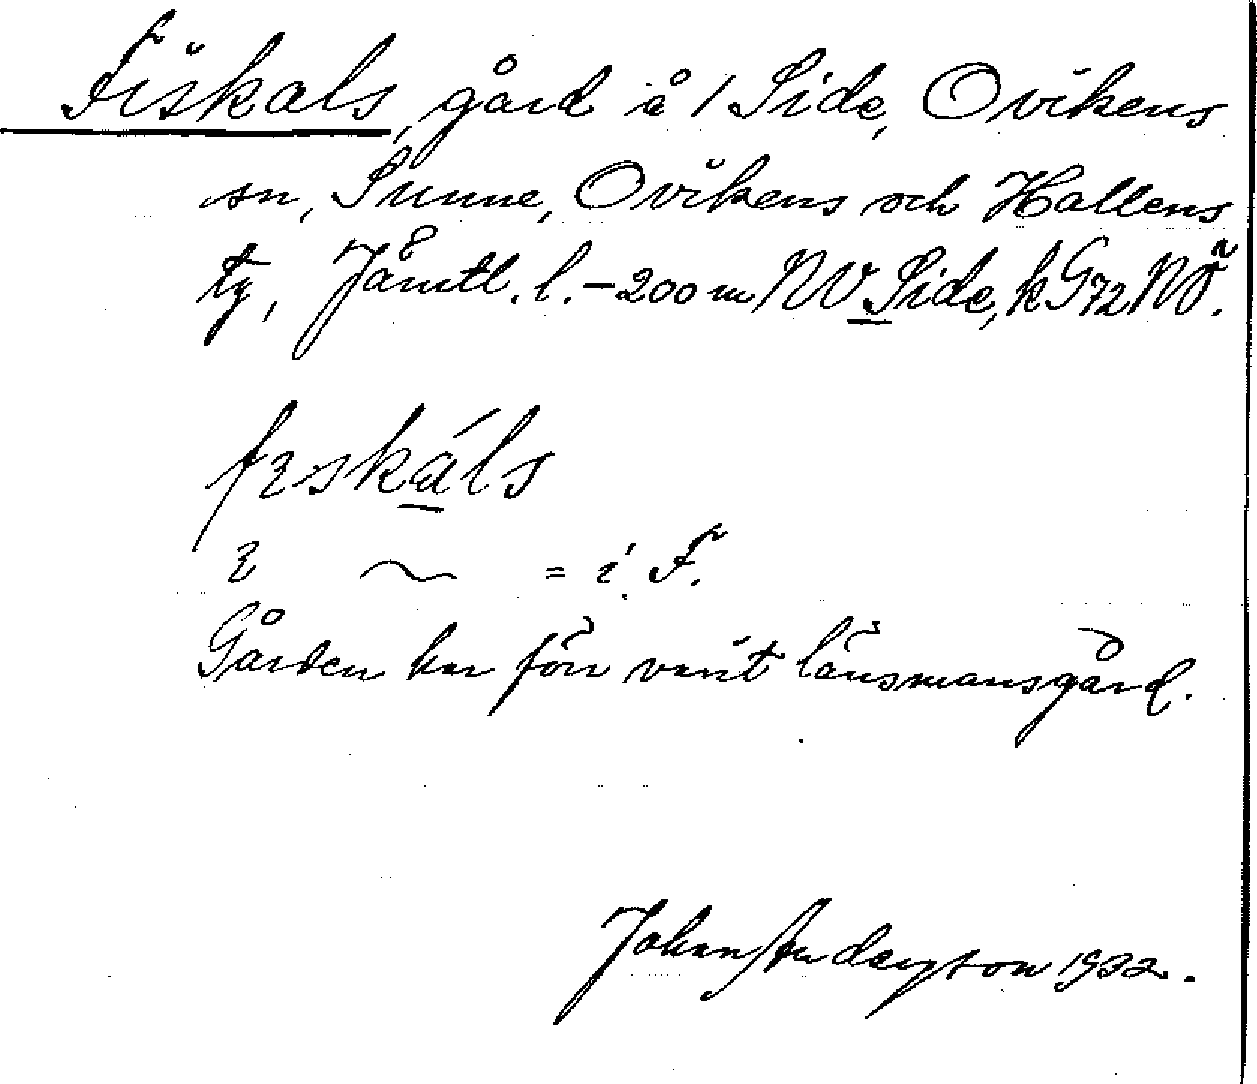 Fiskals, gård å 1 Side, Ovikens
sn, Sunne, Ovikens och Hallens
tg, Jämtl. l. – 200 m NV Side, k G72 NÖ.
fıskáls
ı ~ = i F.
Gården har förr varit länsmansgård.
Johan Anderson 1922.